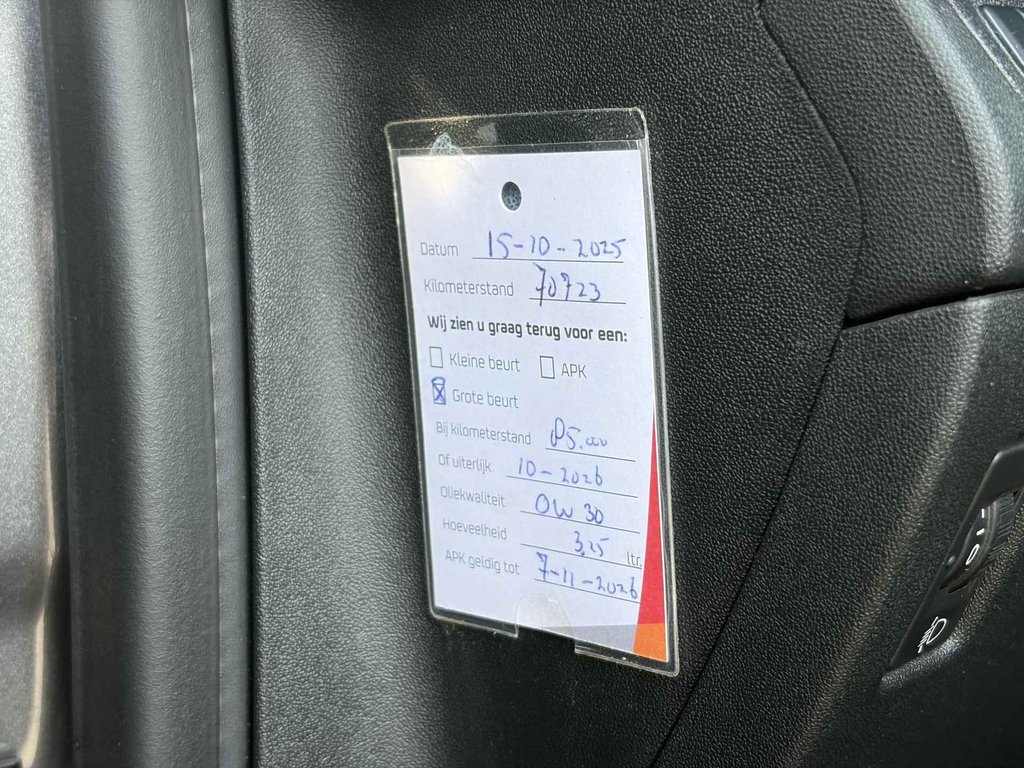 Datum 15-10-2025
Kilometerstand 70723
Wij zien u graag terug voor een:
Kleine beurt APK
Grote beurt
Bij kilometerstand 85.000
Of uiterlijk 10-2026
Oliekwaliteit 0W 30
Hoeveelheid 3,25 ltr.
APK geldig tot 7-11-2026